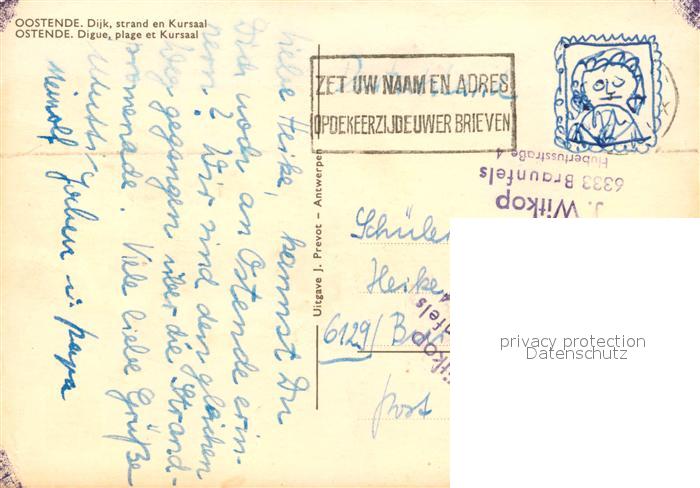 OOSTENDE. Dijk, strand en Kursaal
OSTENDE. Digue, plage et Kursaal
Liebe Heike, kannst Du
Dich noch an Ostende erin-
nern? Wir sind den gleichen
Weg gegangen über die Strand-
promenade. Viele liebe Grüße
Mutti
Jochen u. Papa
Uitgave J. Prevot – Antwerpen
ZET UW NAAM EN ADRES
OP DE KEERZIJDE UWER BRIEVEN
J. Witkop
6333 Braunfels
Hubertusstraße 4
Schüler
Heike
6129/
Post
Witkop
privacy protection
Datenschutz